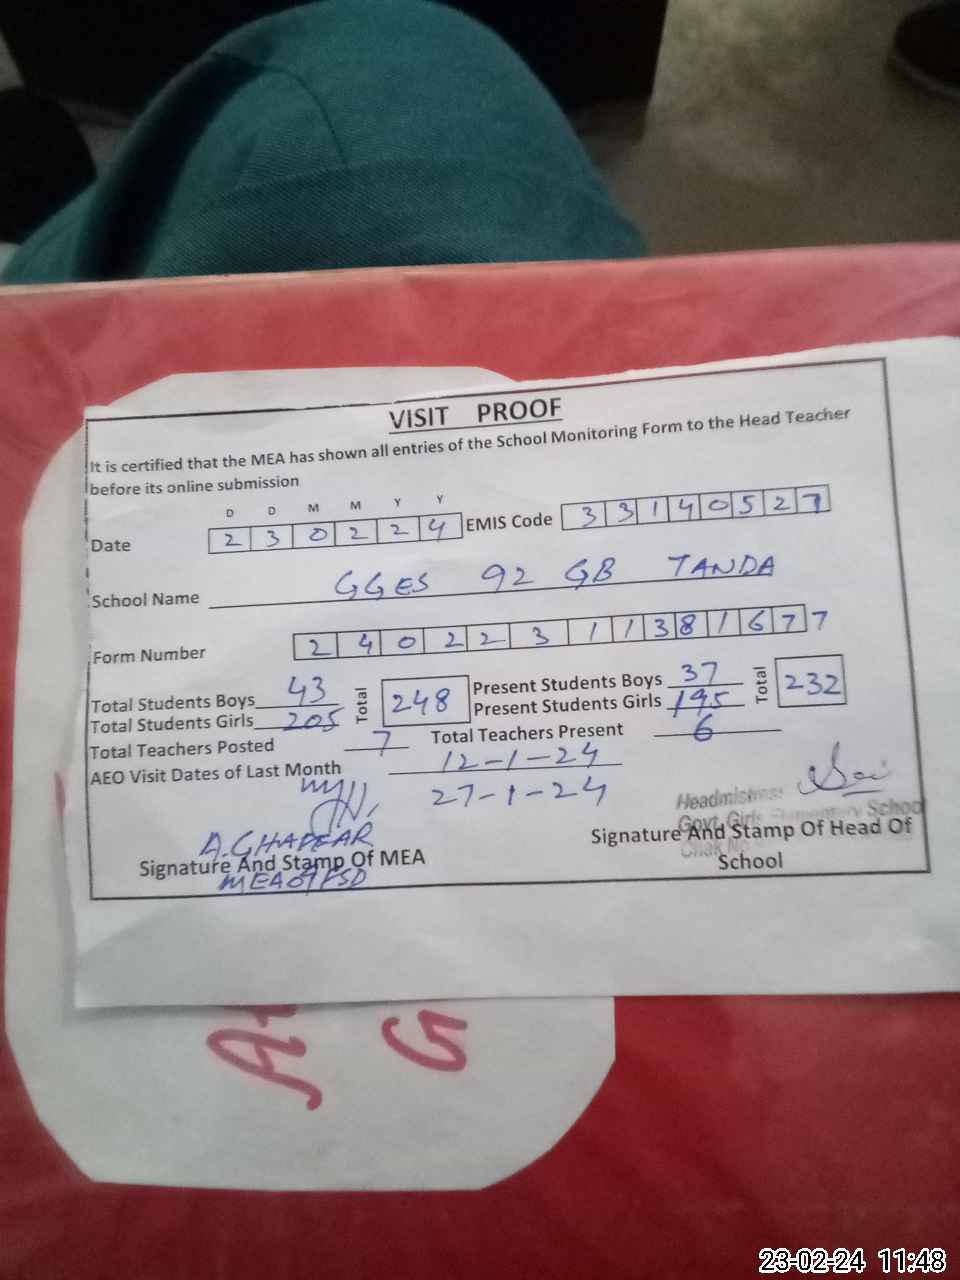 VISIT PROOF
It is certified that the MEA has shown all entries of the School Monitoring Form to the Head Teacher
before its online submission
D D M M Y Y
Date 2 3 0 2 2 4 EMIS Code 3 3 1 4 0 5 2 7
School Name GGES 92 GB TANDA
Form Number 2 4 0 2 2 3 1 1 3 8 1 6 7 7
Total Students Boys 43 Total 248 Present Students Boys 37 Total 232
Total Students Girls 205 Present Students Girls 195
Total Teachers Posted 7 Total Teachers Present 6
AEO Visit Dates of Last Month 12-1-24
27-1-24
Headmistress
Govt. Girls Elementary School
Chak No
A.GHAFFAR
Signature And Stamp Of MEA
MEA 07 FSD
Signature And Stamp Of Head Of
School
G
23-02-24 11:48